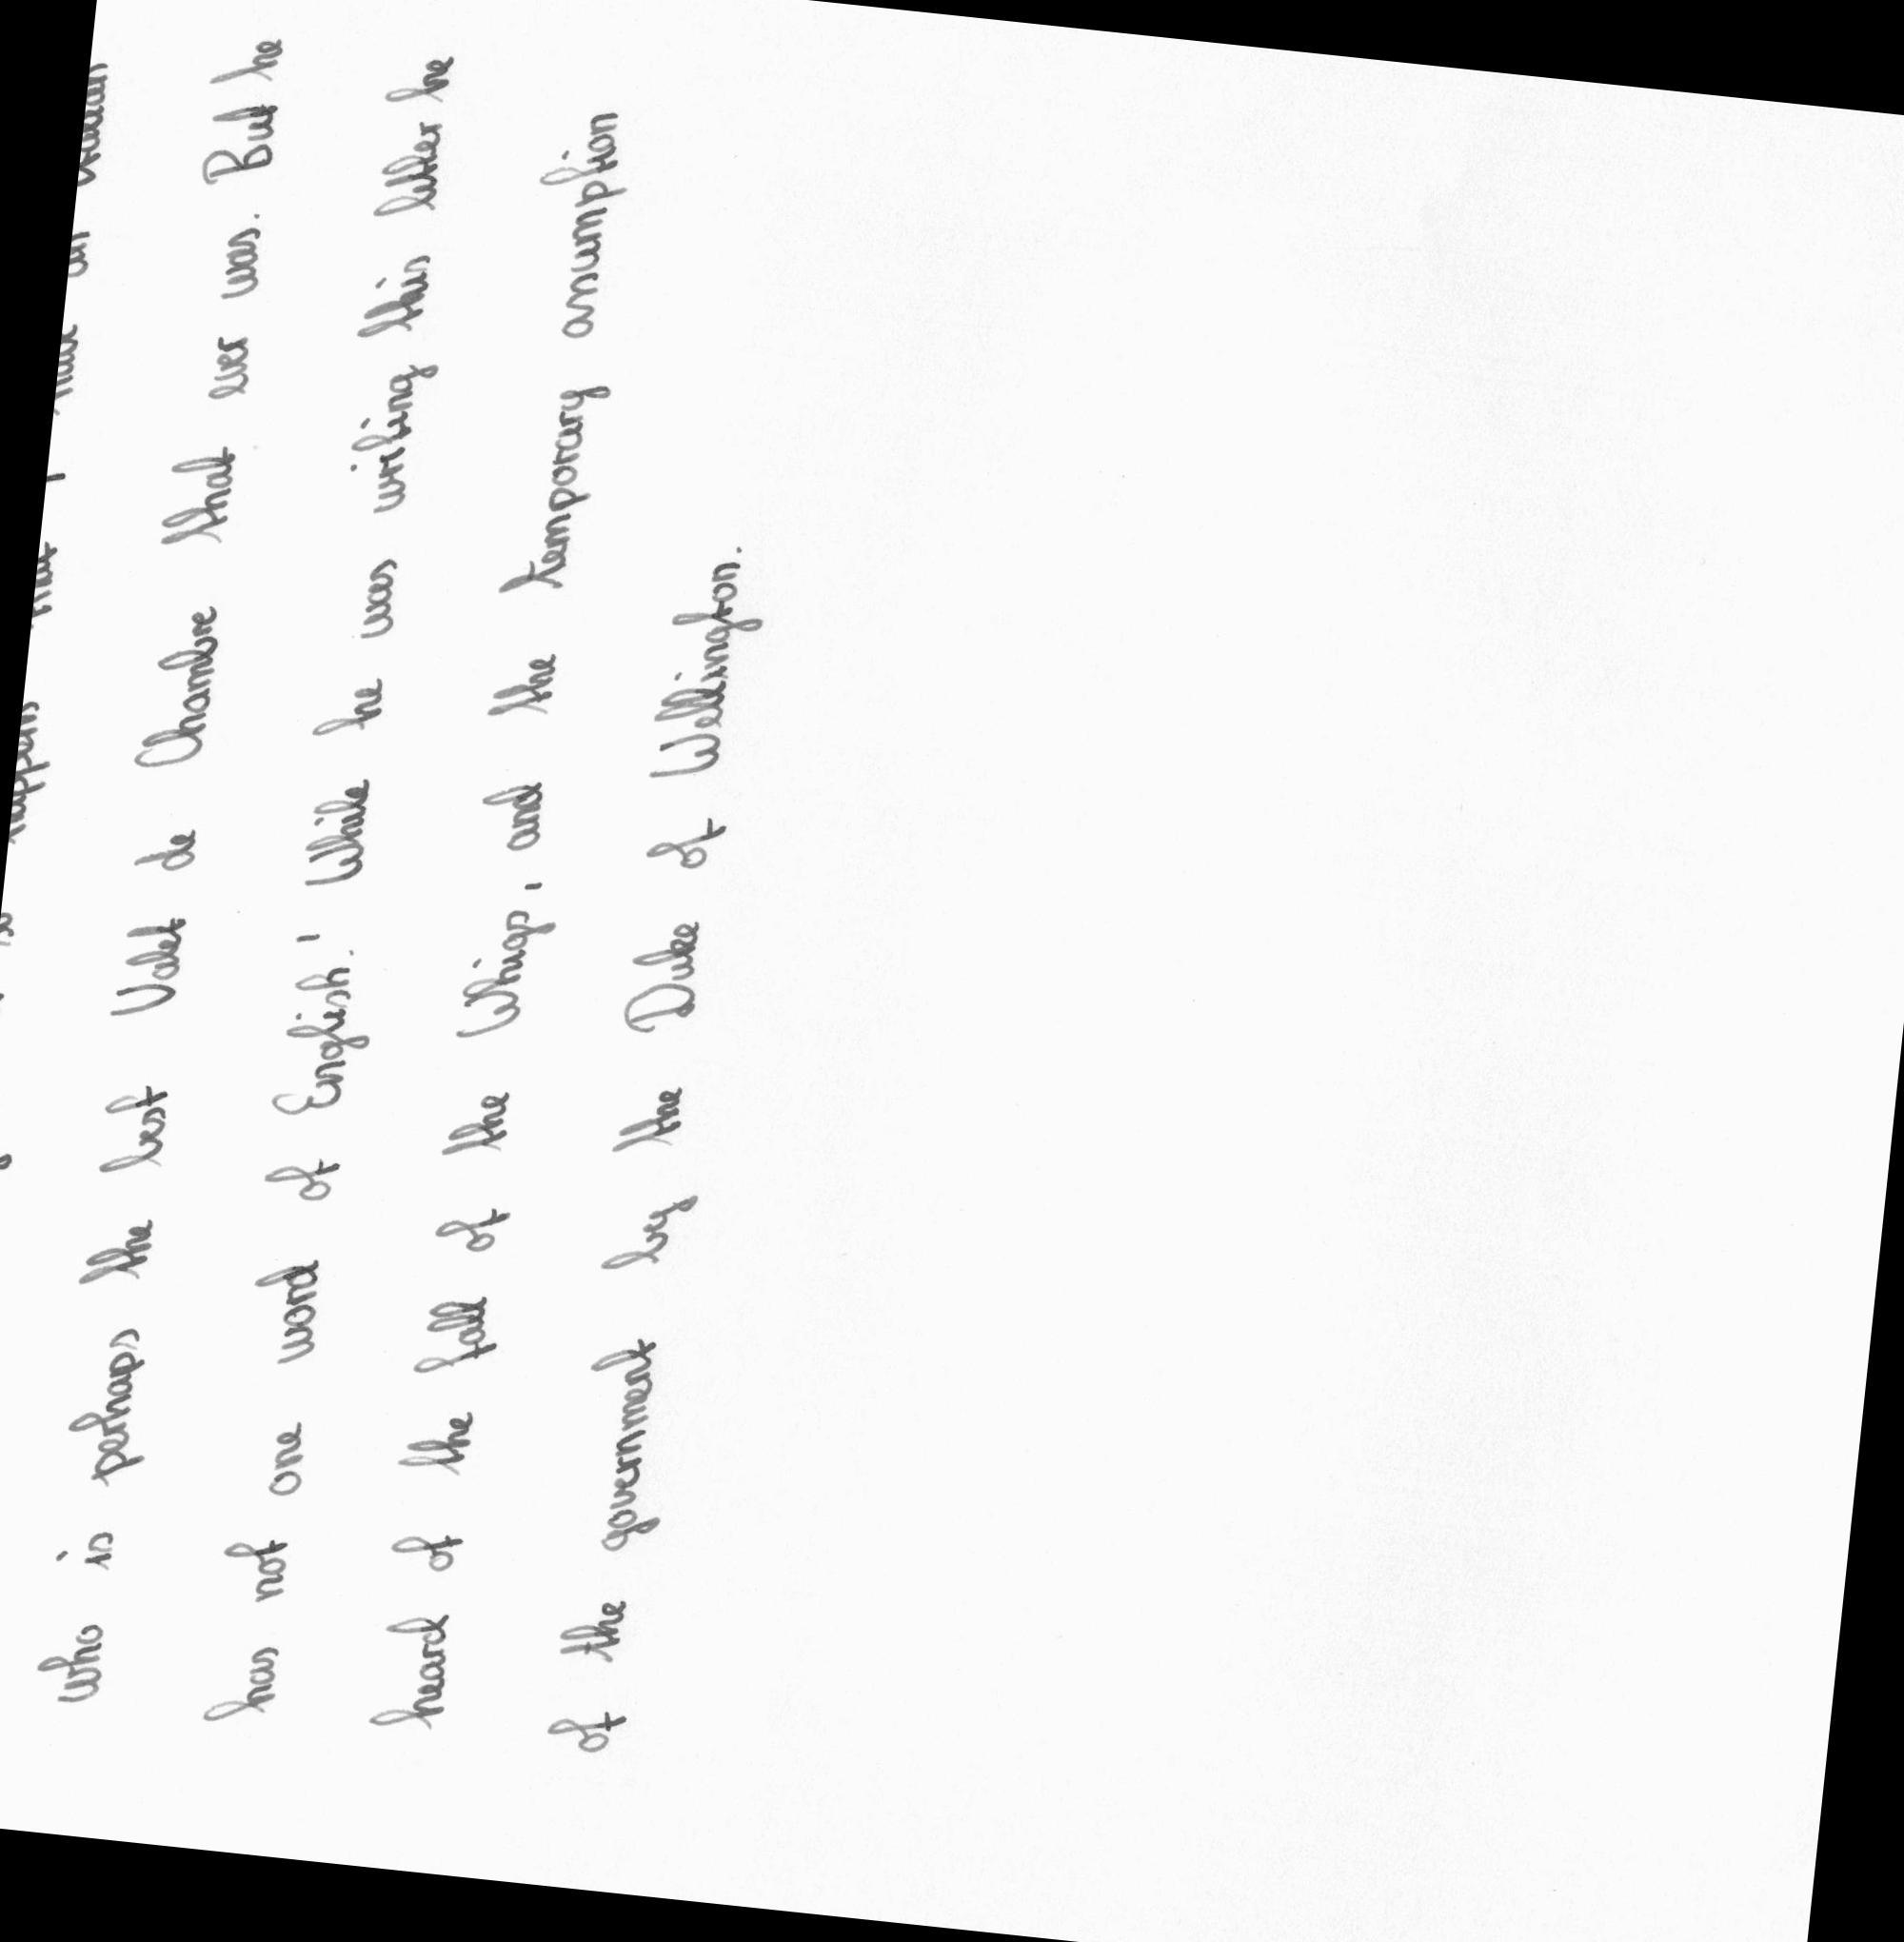 happens that I have an Italian
who is perhaps the best Valet de Chambre that ever was. But he
has not one word of English.' While he was writing this letter he
heard of the fall of the Whigs, and the temporary assumption
of the government by the Duke of Wellington.